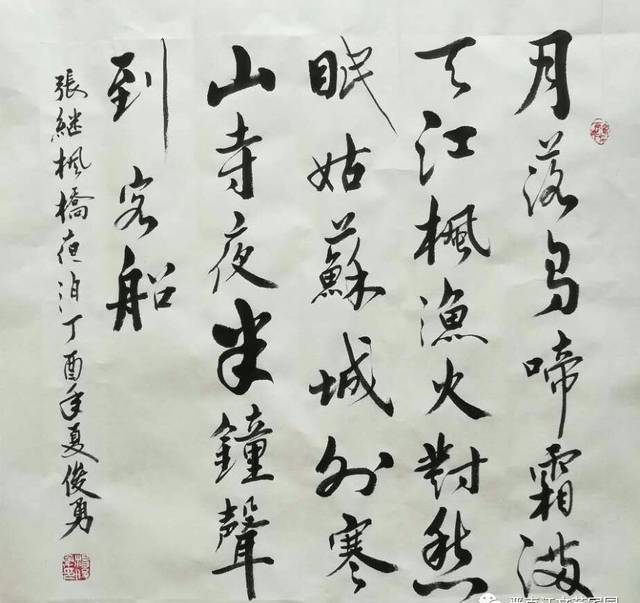 月落烏啼霜满
天江楓漁火對愁
眠姑蘇城外寒
山寺夜半鐘聲
到客船
張継楓橋夜泊丁酉年夏俊勇